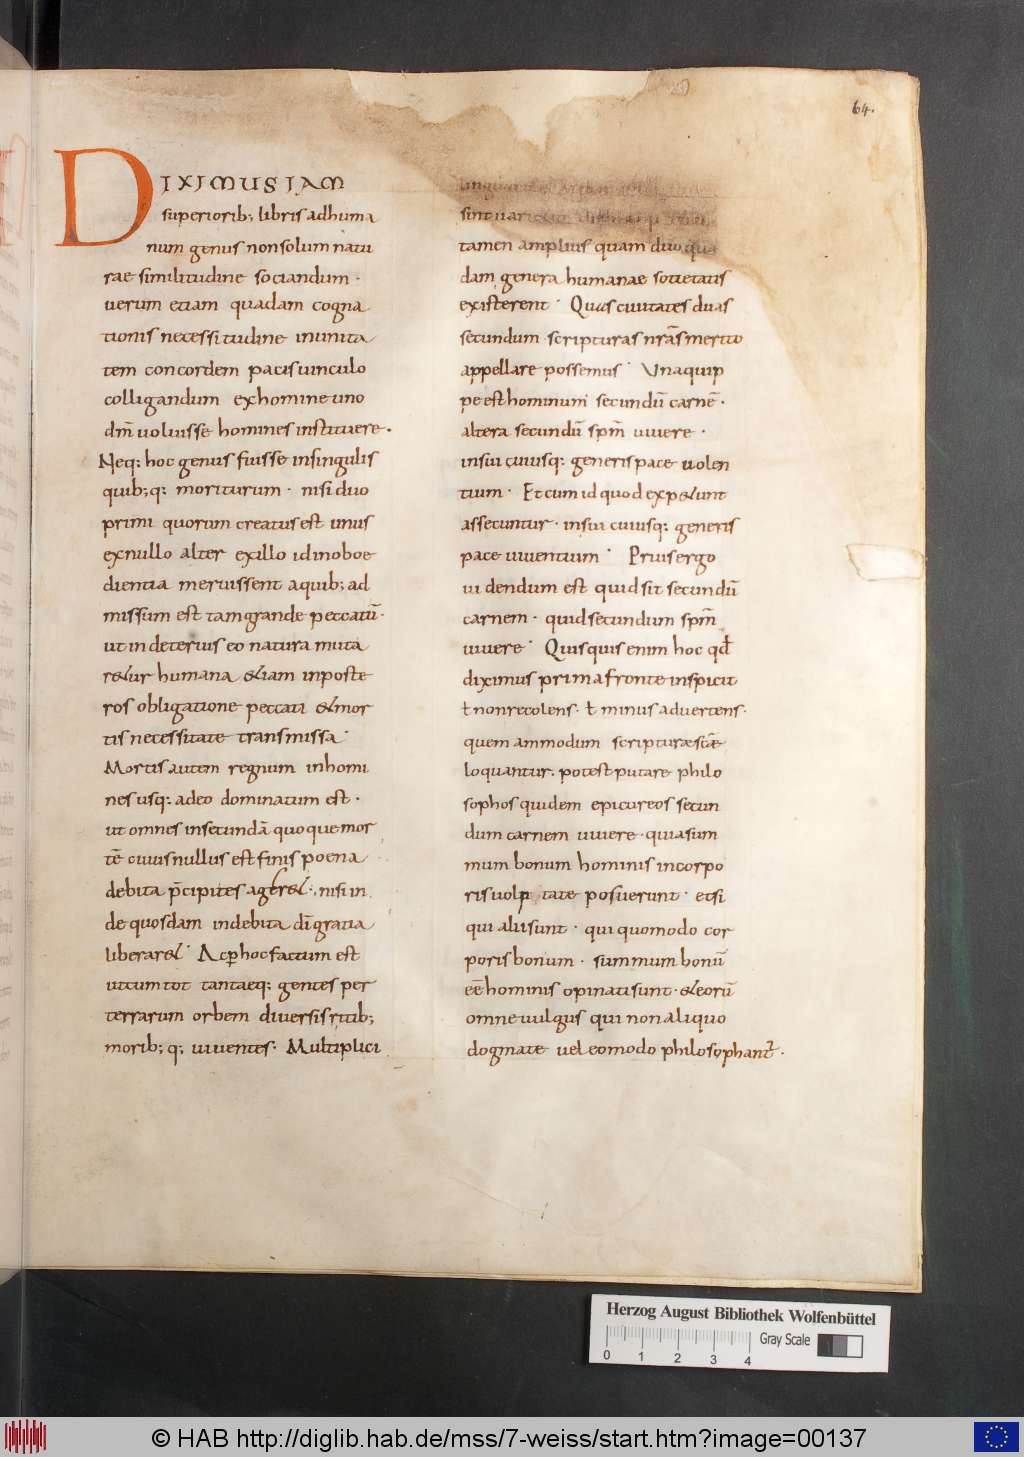 64.
DIXIMUS IAM
superiorib; libris adhuma
num genus non solum natu
rae similitudine sociandum ·
uerum etiam quadam cogna
tionis necessitudine inunita
tem concordem pacis uinculo
colligandum ex homine uno
dm̄ uoluisse homines instituere ·
Neq: hoc genus fuisse insingulis
quib; q: moriturum · nisi duo
primi quorum creatus est unus
exnullo alter exillo id inoboe
dientia meruissent aquib; ad
missum est tam grande peccatū ·
ut in deterius eo natura muta
ret&ur humana &iam inposte
ros obligatione peccati & mor
tis necessitate transmissa ·
Mortis autem regnum inhomi
nes usq: adeo dominatum est ·
ut omnes insecundā quoque mor
tē cuius nullus est finis poena
debita p̄cipites ager& · nisi in
de quosdam indebita dī gratia
liberar& · Ac ꝑ hoc factum est
ut cum tot tantaeq: gentes per
terrarum orbem diuersis ritib;
morib; q; uiuentes · Multiplici
sint
tamen amplius quam duo quae
dam genera humanae societatis
existerent · Quas ciuitates duas
secundum scripturas nr̄as merito
appellare possemus · Vna quip
pe est hominum secundū carnē ·
altera secundū spm̄ uiuere ·
insui cuiusq: generis pace uolen
tium · Et cum id quod exp&unt
assecuntur · insui cuiusq: generis
pace uiuentium · Prius ergo
uidendum est quid sit secundū
carnem · quid secundum spm̄
uiuere · Quisquis enim hoc qđ
diximus prima fronte inspicit
ł non recolens · ł minus aduertens ·
quem ammodum scripturae scāe
loquantur · potest putare philo
sophos quidem epicureos secun
dum carnem uiuere · quia sum
mum bonum hominis incorpo
ris uolp tate posuerunt · etsi
qui alii sunt · qui quomodo cor
poris bonum · summum bonū
eē hominis opinati sunt · & eorū
omne uulgus qui non aliquo
dogmate uel eo modo philosophant ·
Herzog August Bibliothek Wolfenbüttel
Gray Scale
0 1 2 3 4
© HAB http://diglib.hab.de/mss/7-weiss/start.htm?image=00137